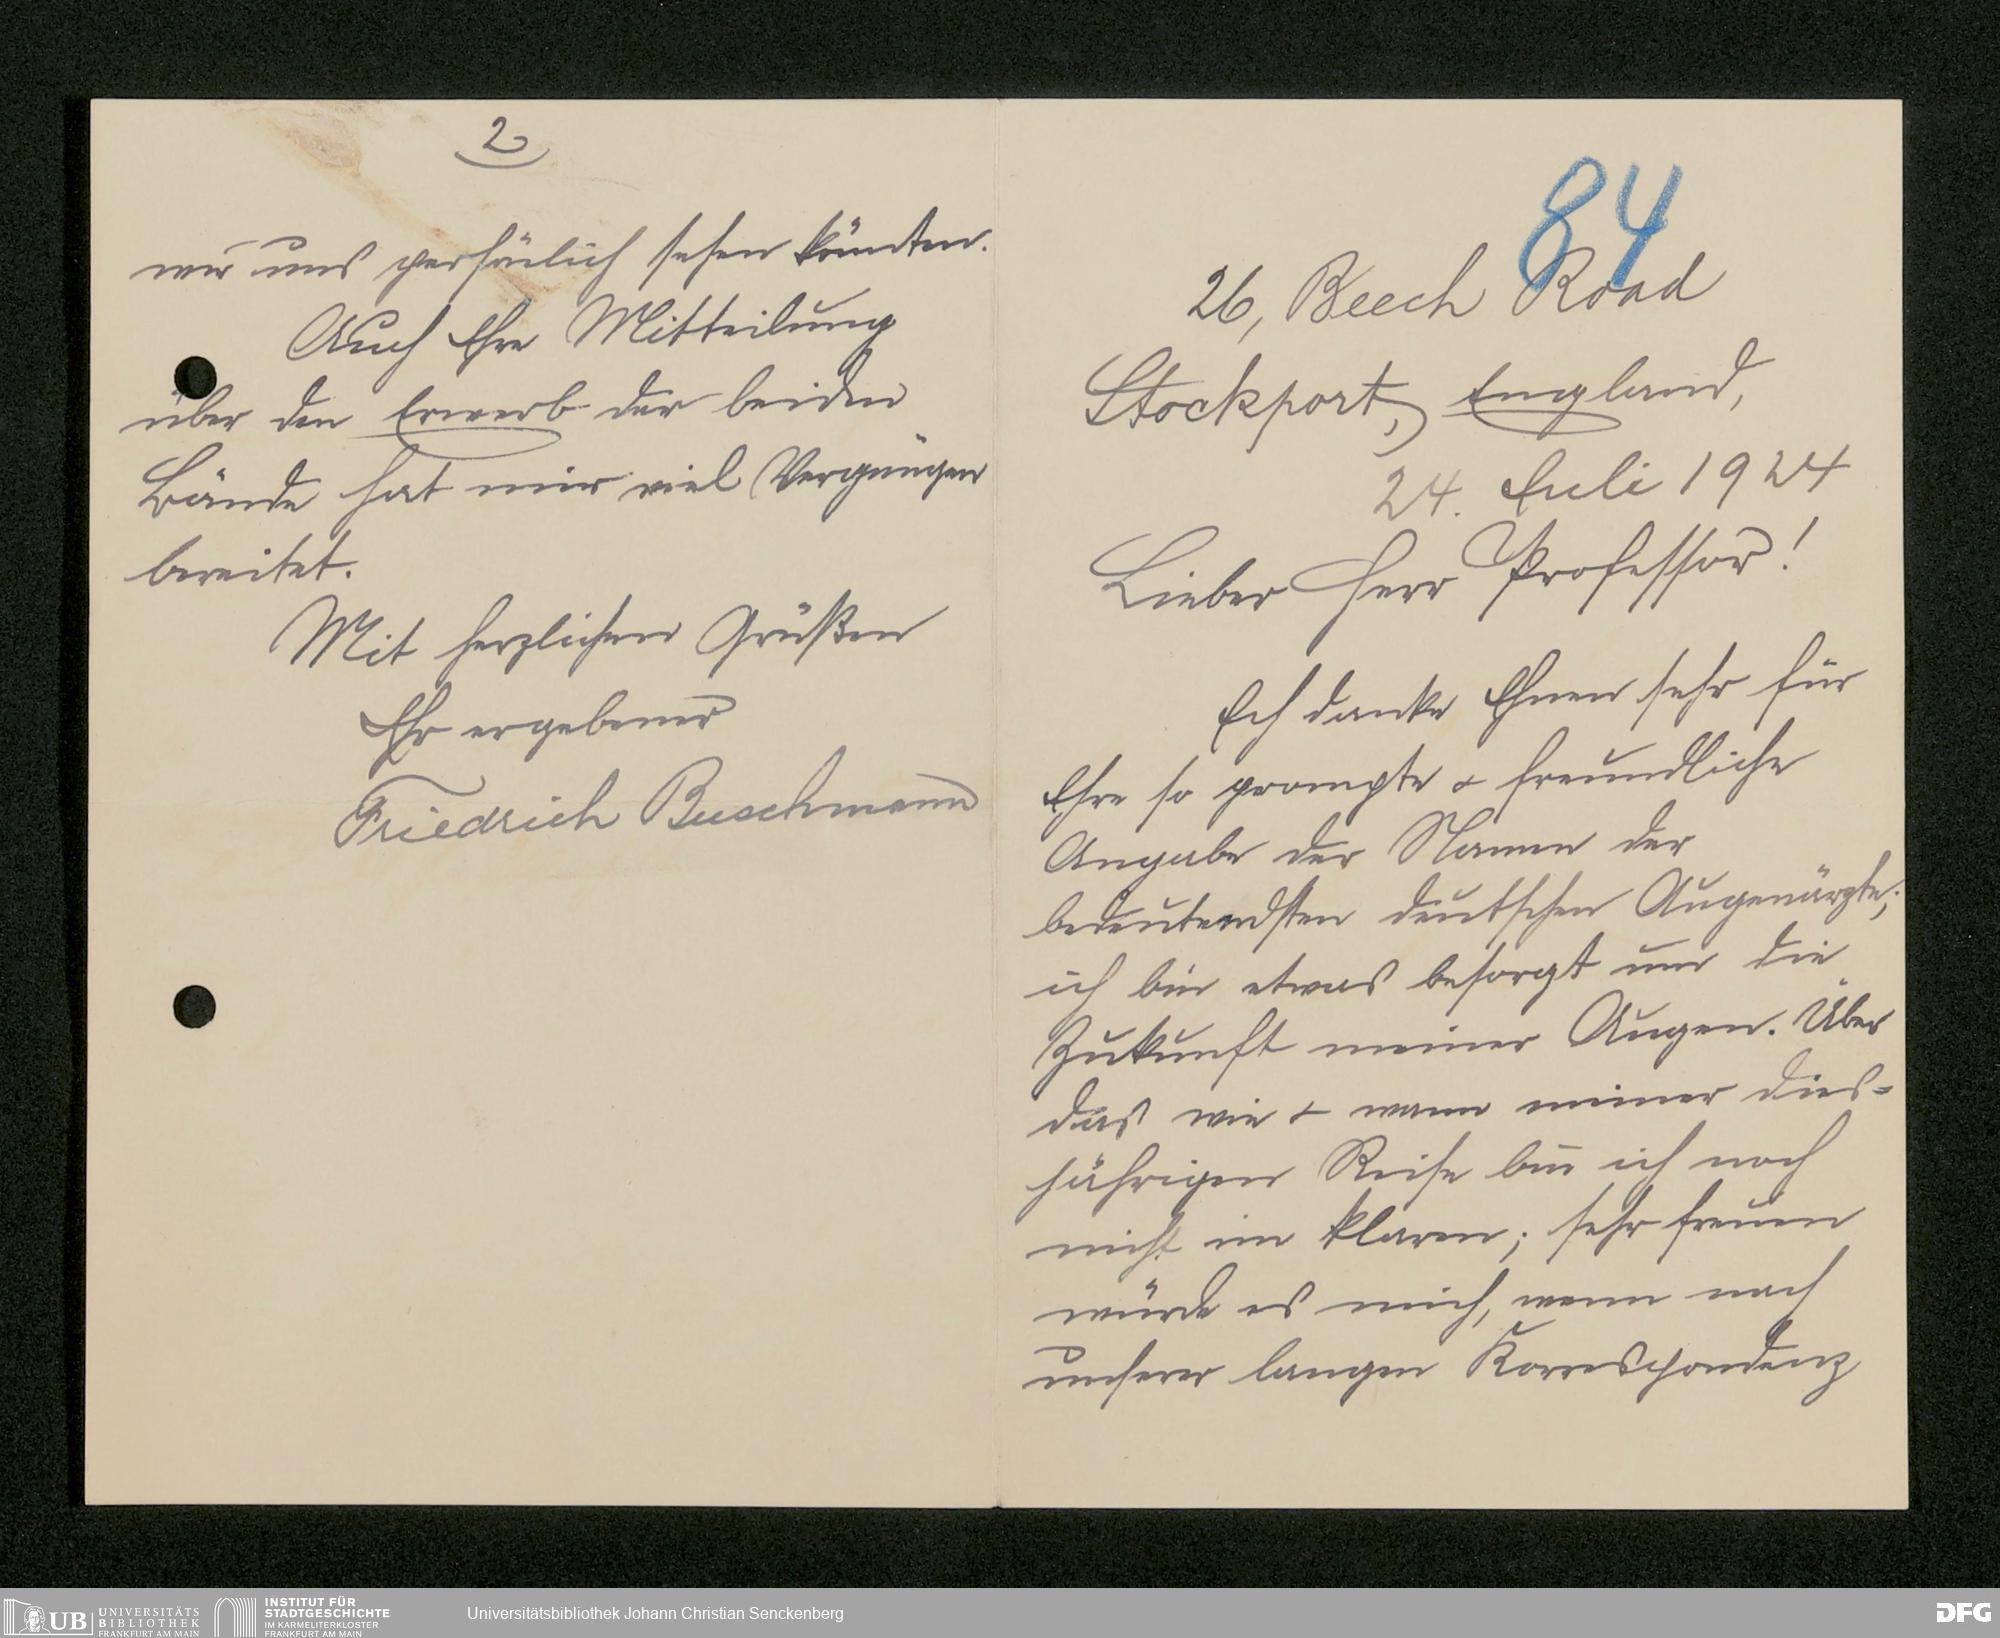 84
26, Beech Road
Stockport, England,
24. Juli 1924
Lieber Herr Professor!
Ich danke Ihnen sehr für
Ihre so prompte & freundliche
Angabe der Namen der
bedeutendsten deutschen Augenärzte;
ich bin etwas besorgt um die
Zukunft meiner Augen. Über
das wie & wann meiner dies=
jährigen Reise bin ich noch
nicht im klaren; sehr freuen
würde es mich, wenn nach
unserer langen Korrespondenz
2
wir uns persönlich sehen könnten.
Auch Ihre Mitteilung
über den Erwerb der beiden
Bände hat mir viel Vergnügen
bereitet.
Mit herzlichen Grüßen
Ihr ergebener
Friedrich Buschmann
UB UNIVERSITÄTS
BIBLIOTHEK
FRANKFURT AM MAIN
INSTITUT FÜR
STADTGESCHICHTE
IM KARMELITERKLOSTER
FRANKFURT AM MAIN
Universitätsbibliothek Johann Christian Senckenberg
DFG